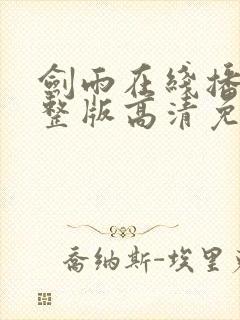 劍雨在綫播
整版高清免
喬納斯-埃里克